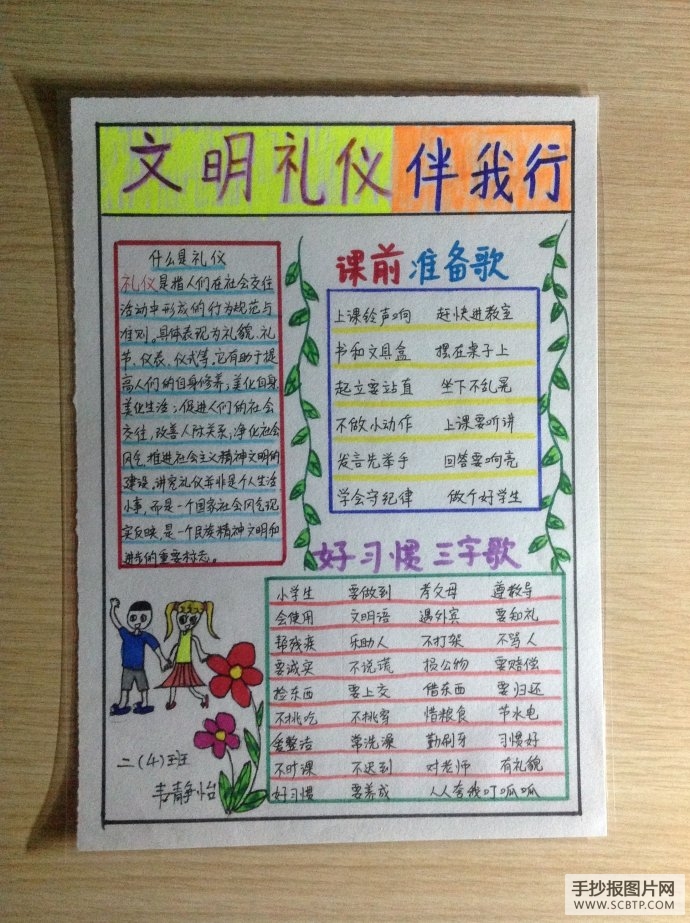 文明礼仪伴我行
什么是礼仪
礼仪是指人们在社会交往
活动中形成的行为规范与
准则。具体表现为礼貌、礼
节、仪表、仪式等。它有助于提
高人们的自身修养；美化自身
美化生活；促进人们的社会
交往，改善人际关系；净化社会
风气，推进社会主义精神文明的
建设。讲究礼仪并非是个人生活
小事，而是一个国家社会风气现
实反映，是一个民族精神文明和
进步的重要标志。
课前准备歌
上课铃声响 赶快进教室
书和文具盒 摆在桌子上
起立要站直 坐下不乱晃
不做小动作 上课要听讲
发言先举手 回答要响亮
学会守纪律 做个好学生
好习惯三字歌
小学生 要做到 孝父母 遵教导
会使用 文明语 遇外宾 要知礼
帮残疾 乐助人 不打架 不骂人
要诚实 不说谎 损公物 要赔偿
捡东西 要上交 借东西 要归还
不挑吃 不挑穿 惜粮食 节水电
爱整洁 常洗澡 勤刷牙 习惯好
不旷课 不迟到 对老师 有礼貌
好习惯 要养成 人人夸我叮呱呱
二(4)班
韦静怡
手抄报图片网
WWW.SCBTP.COM